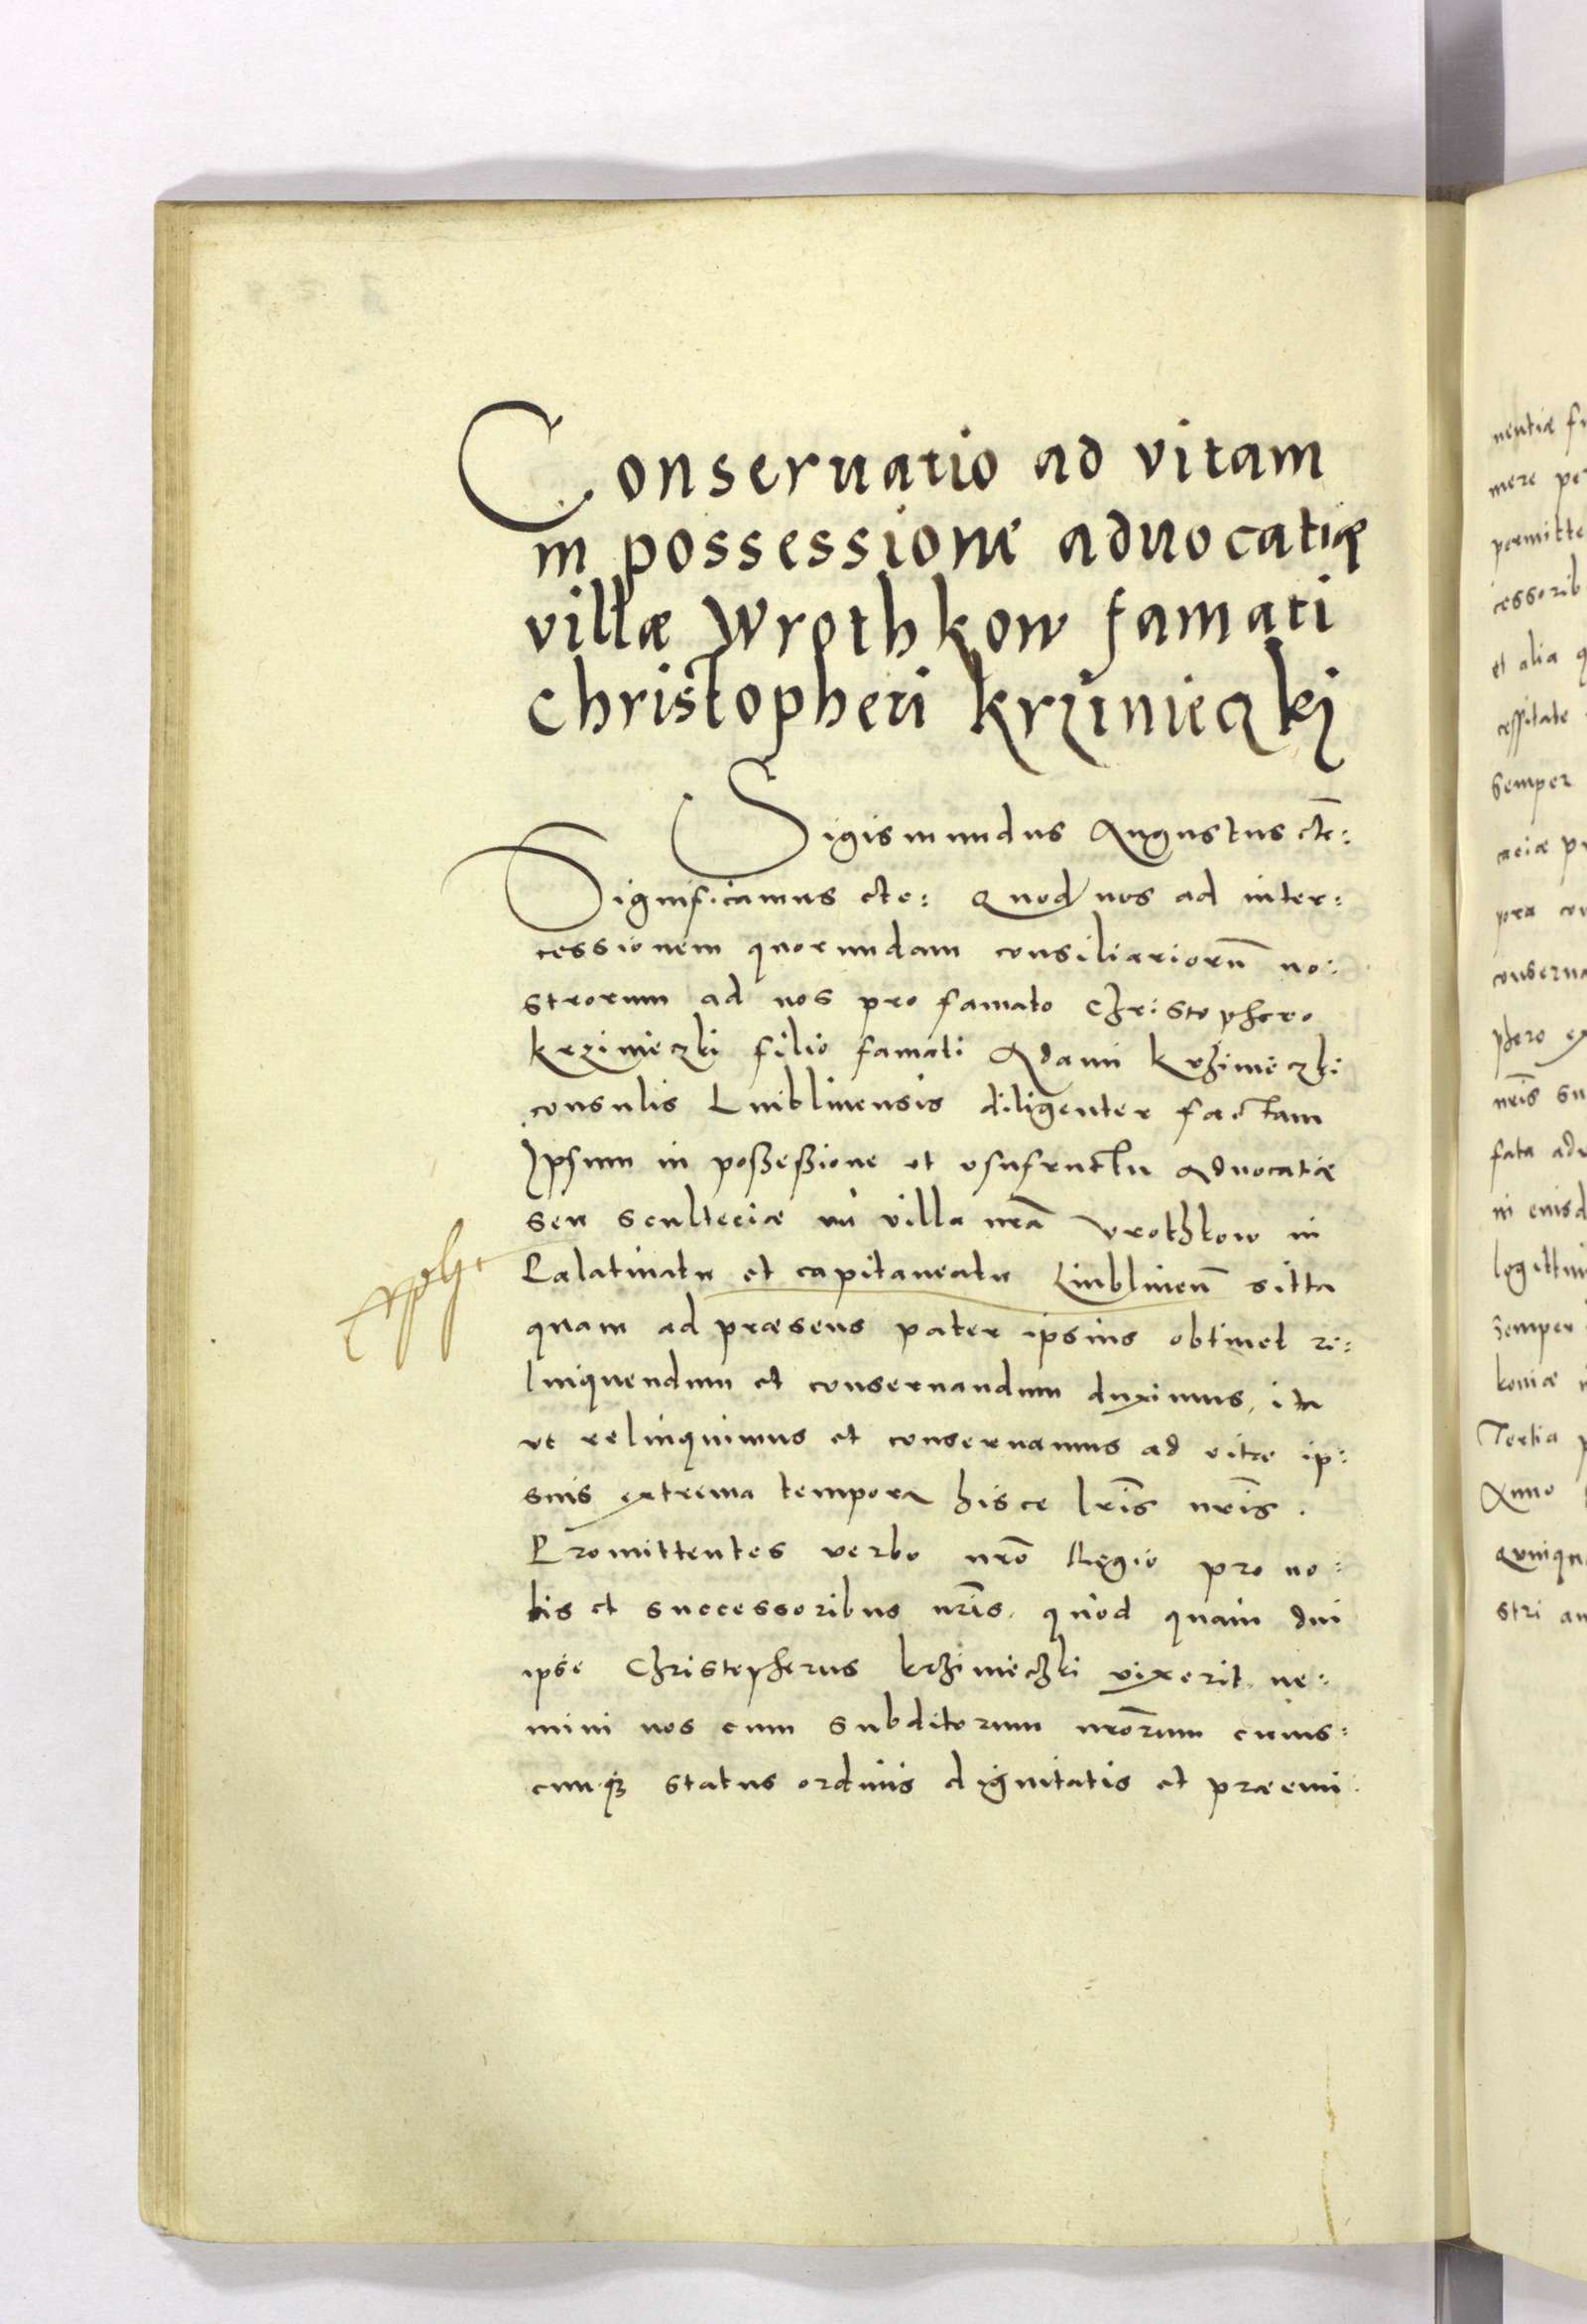 Conseruatio ad vitam
in possessione aduocatiæ
villæ Wrothkow famati
Christopheri Krzinieczki
Sigismundus Augustus etc:
Significamus etc: Quod nos ad inter:
cessionem quorundam consiliariorū no:
strorum ad nos pro famato Christophero
Krzinieczki filio famati Adami Krzinieczki
consulis Lublinensis diligenter factam
Ipsum in possessione et vsufructu Aduocatiæ
seu sculteciæ in villa nrā Vrothkow in
Palatinatu et capitaneatu Lublineñ sitta
quam ad præsens pater ipsius obtinet re:
linquendum et conseruandum duximus, ita
vt relinquimus et conseruamus ad vitæ ip:
sius extrema tempora hisce lrīs nrīs.
Promittentes verbo nrō Regio pro no:
bis et successoribus nrīs, quod quam diu
ipse Christopherus Krzinieczki vixerit, ne:
mini nos eum subditorum nrōrum cuius:
cunqȝ status ordinis dignitatis et præemi:
nentiæ
mere
permitte
cessorib
et alia
cessitate
semper
pora
conserua
phero
nrīs
fata
in
legittim
semper
koniæ
Tertia
Anno
quinqu
stri